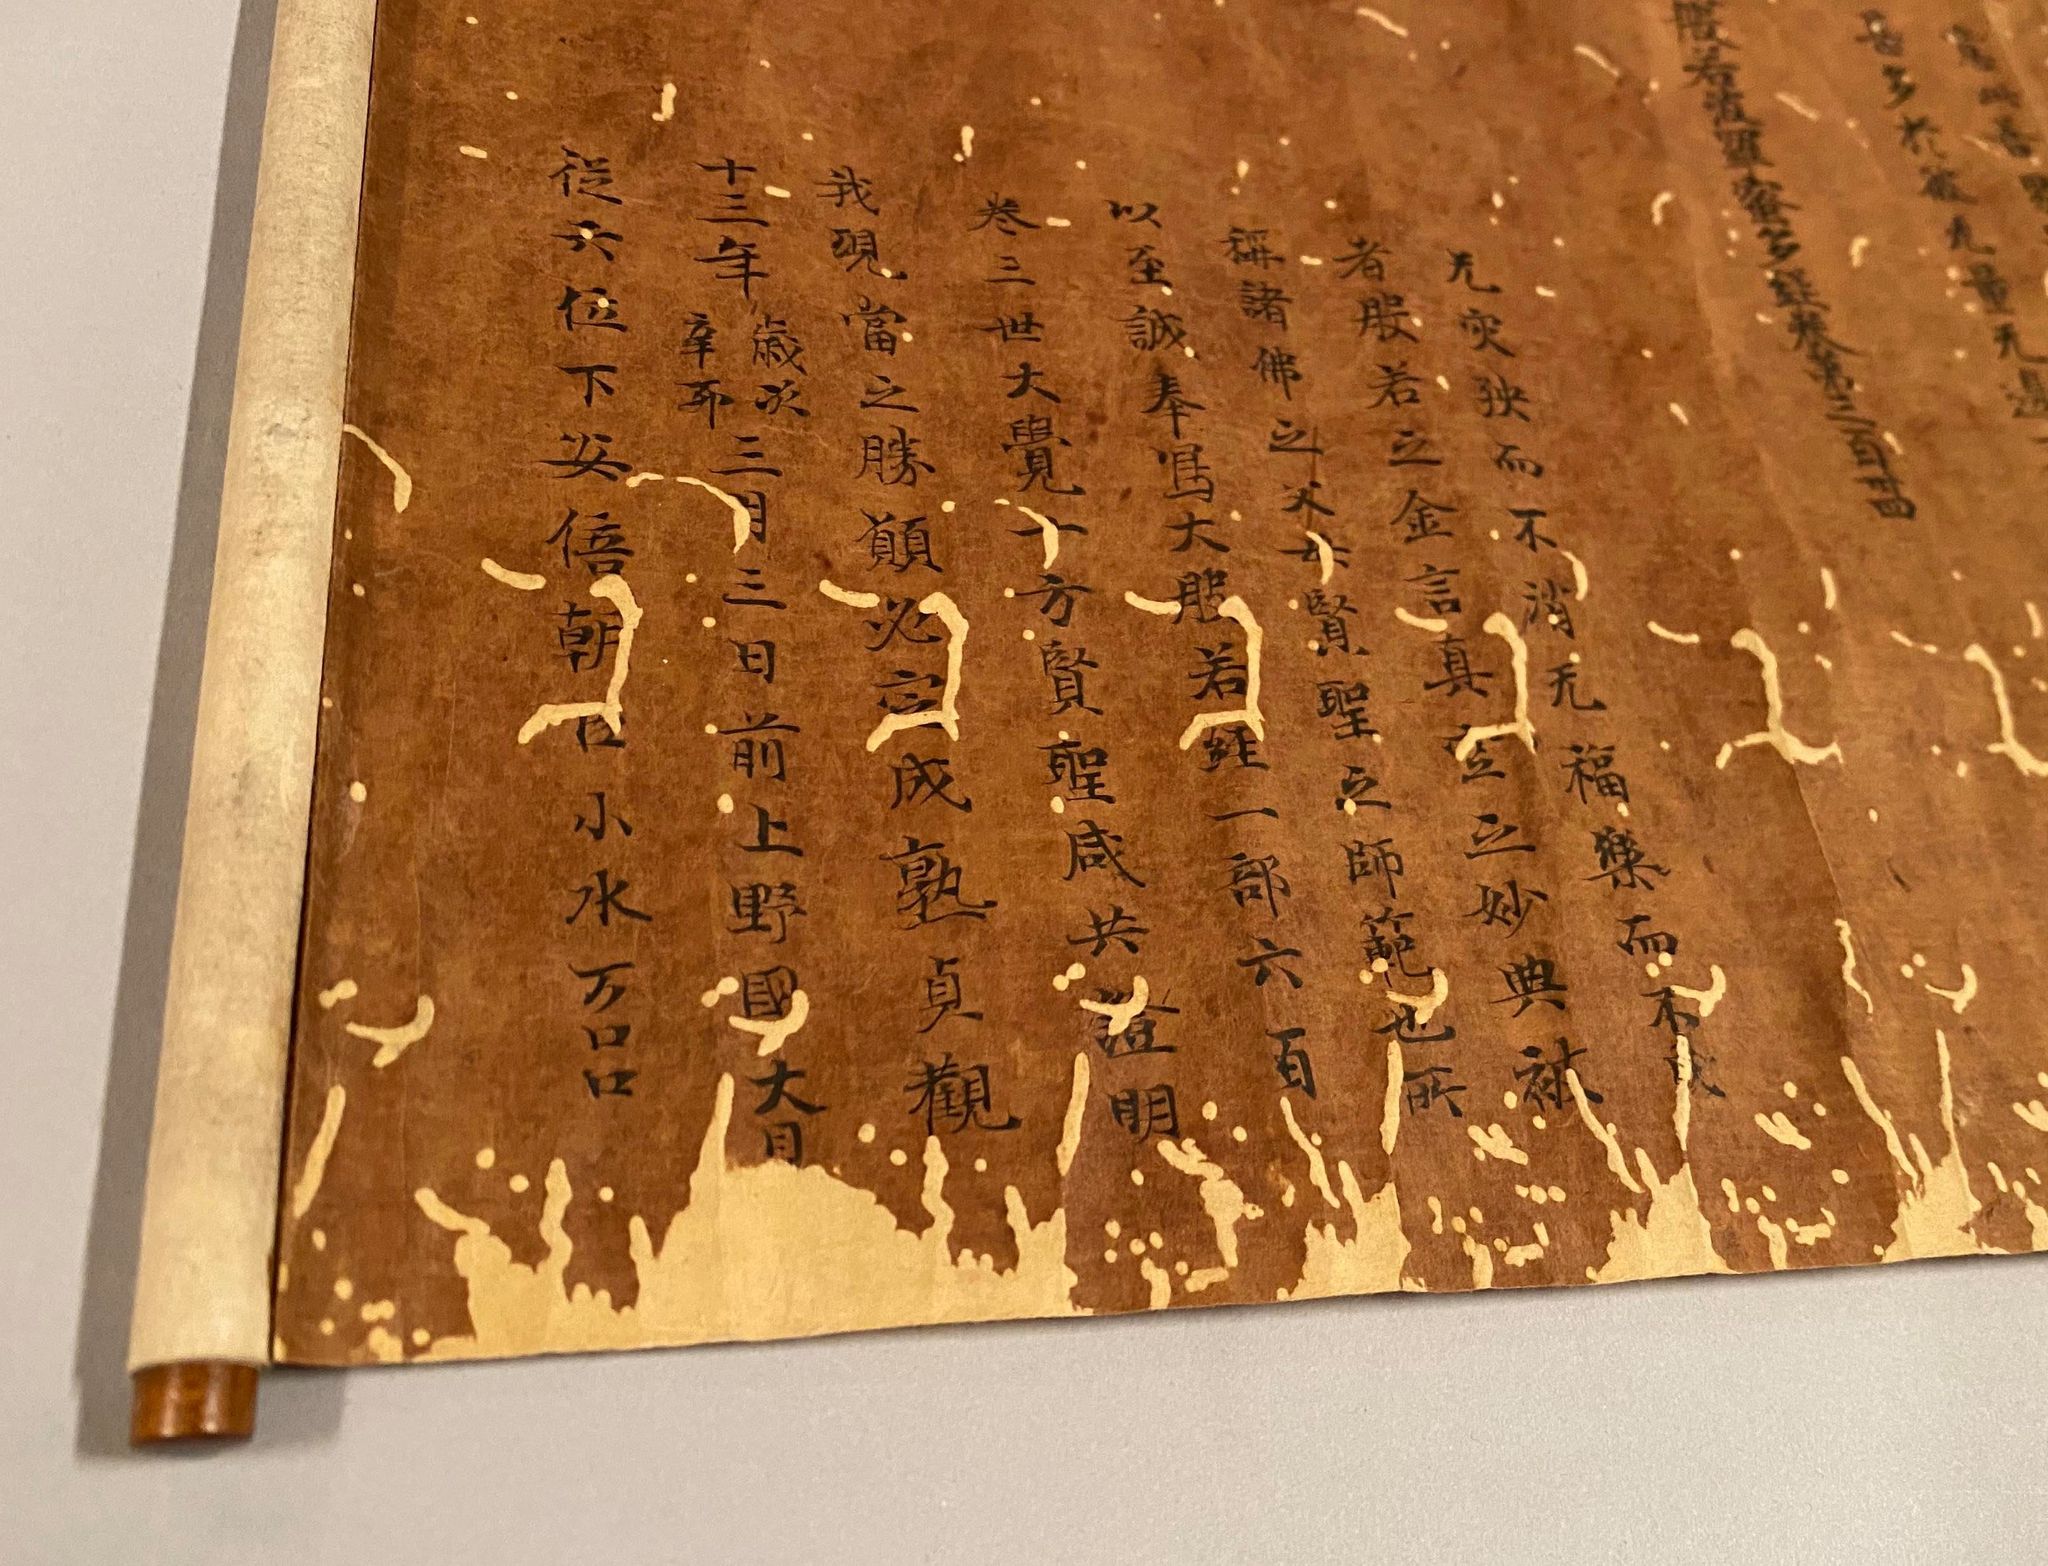 喜多於彼九量无邊
般若波羅蜜多經卷第三百卌
无灾殃而不消无福樂而不成
者般若之金言真空之妙典被
稱諸佛之父母賢聖之師範也所
以至誠奉寫大般若經一部六百
卷三世大覺十方賢聖咸共證明
我現當之勝願必定成熟貞觀
十三年歳次辛卯三月三日前上野國大目
從六位下安倍朝臣小水万呂